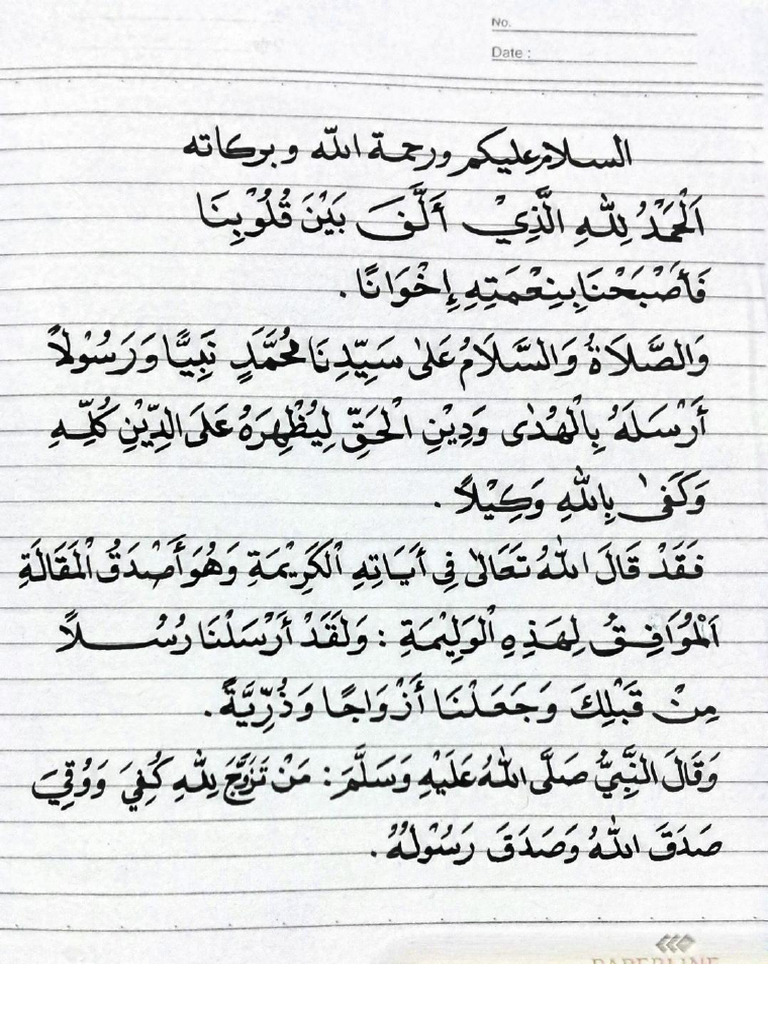 No.
Date :
السلام عليكم ورحمة الله وبركاته
اَلْحَمْدُ لِلّٰهِ الَّذِيْ أَلَّفَ بَيْنَ قُلُوْبِنَا
فَأَصْبَحْنَا بِنِعْمَتِهِ إِخْوَانًا .
وَالصَّلَاةُ وَالسَّلَامُ عَلىٰ سَيِّدِنَا مُحَمَّدٍ نَبِيًّا وَرَسُوْلاً
أَرْسَلَهُ بِالْهُدٰى وَدِيْنِ الْحَقِّ لِيُظْهِرَهُ عَلَى الدِّيْنِ كُلِّهِ
وَكَفىٰ بِاللهِ وَكِيْلاً .
فَقَدْ قَالَ اللهُ تَعَالىٰ فِى أٰيَاتِهِ الْكَرِيْمَةِ وَهُوَ أَصْدَقُ الْمَقَالَةِ
اَلْمُوَافِقُ لِهَذِهِ الْوَلِيْمَةِ : وَلَقَدْ أَرْسَلْنَا رُسُلاً
مِنْ قَبْلِكَ وَجَعَلْنَا أَزْوَاجًا وَذُرِّيَّةً .
وَقَالَ النَّبِيُّ صَلَّى اللهُ عَلَيْهِ وَسَلَّمَ : مَنْ تَزَوَّجَ لِلّٰهِ كُفِيَ وَوُقِيَ
صَدَقَ اللهُ وَصَدَقَ رَسُوْلُهُ .
PAPERLINE